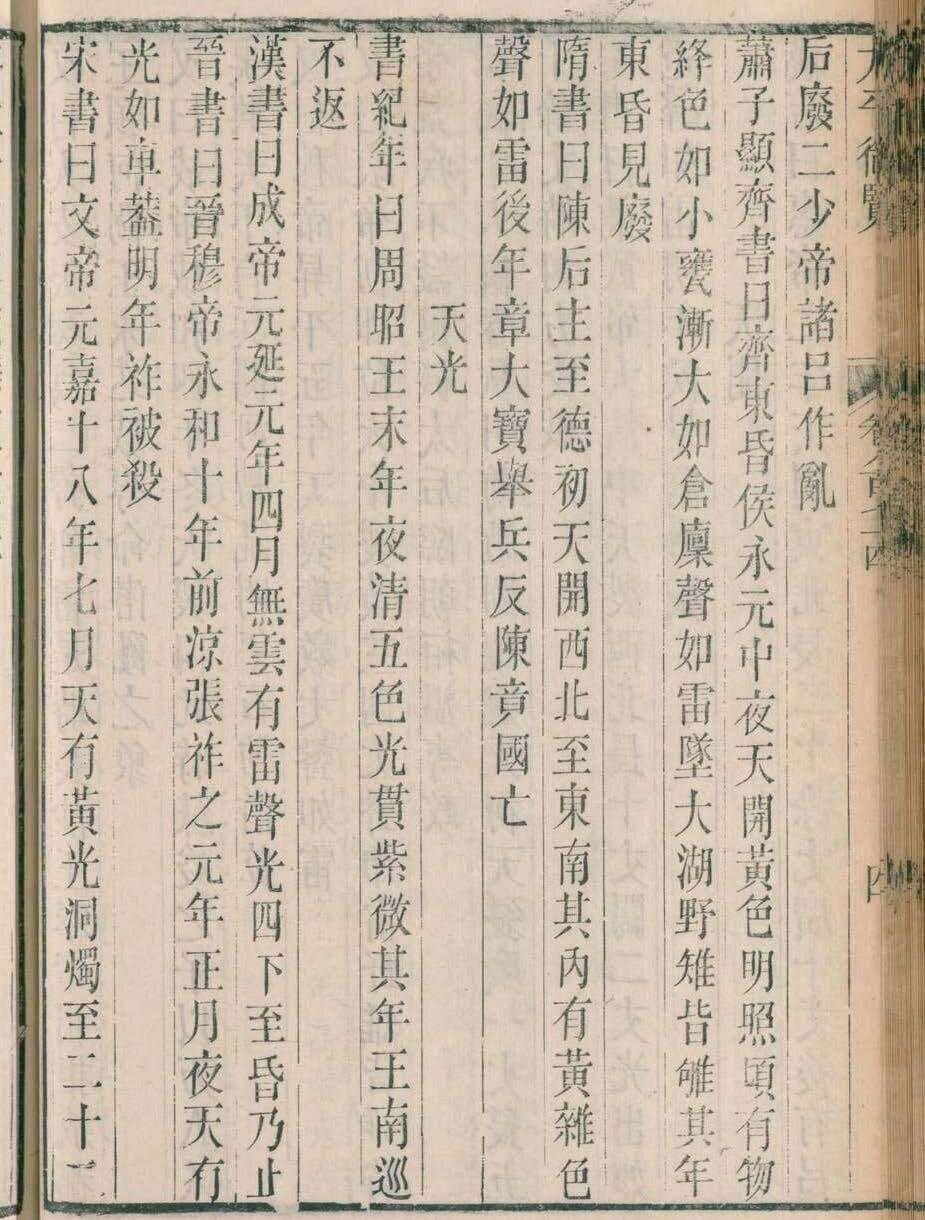 太平御覽
卷八百七十四
四
后廢二少帝諸呂作亂
蕭子顯齊書曰齊東昏侯永元中夜天開黃色明照頃有物
絳色如小甕漸大如倉廩聲如雷墜大湖野雉皆雊其年
東昏見廢
隋書曰陳后主至德初天開西北至東南其內有黃雜色
聲如雷後年章大寶舉兵反陳竟國亡
天光
書紀年曰周昭王末年夜清五色光貫紫微其年王南巡
不返
漢書曰成帝元延元年四月無雲有雷聲光四下至昏乃止
晉書曰晉穆帝永和十年前涼張祚之元年正月夜天有
光如車蓋明年祚被殺
宋書曰文帝元嘉十八年七月天有黃光洞燭至二十